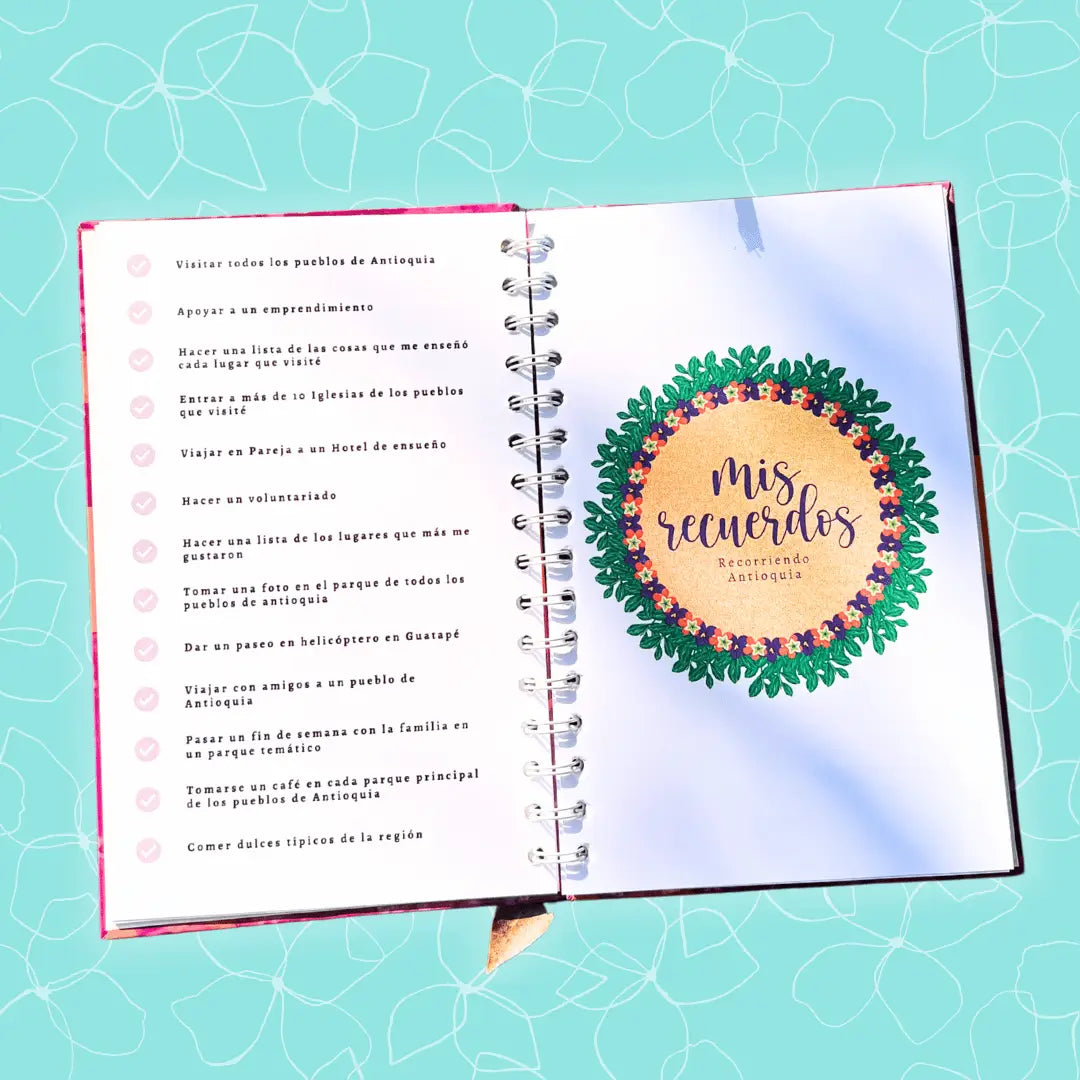 Visitar todos los pueblos de Antioquia
Apoyar a un emprendimiento
Hacer una lista de las cosas que me enseñó
cada lugar que visité
Entrar a más de 10 Iglesias de los pueblos
que visité
Viajar en Pareja a un Hotel de ensueño
Hacer un voluntariado
Hacer una lista de los lugares que más me
gustaron
Tomar una foto en el parque de todos los
pueblos de antioquia
Dar un paseo en helicóptero en Guatapé
Viajar con amigos a un pueblo de
Antioquia
Pasar un fin de semana con la familia en
un parque temático
Tomarse un café en cada parque principal
de los pueblos de Antioquia
Comer dulces típicos de la región
mis
recuerdos
Recorriendo
Antioquia